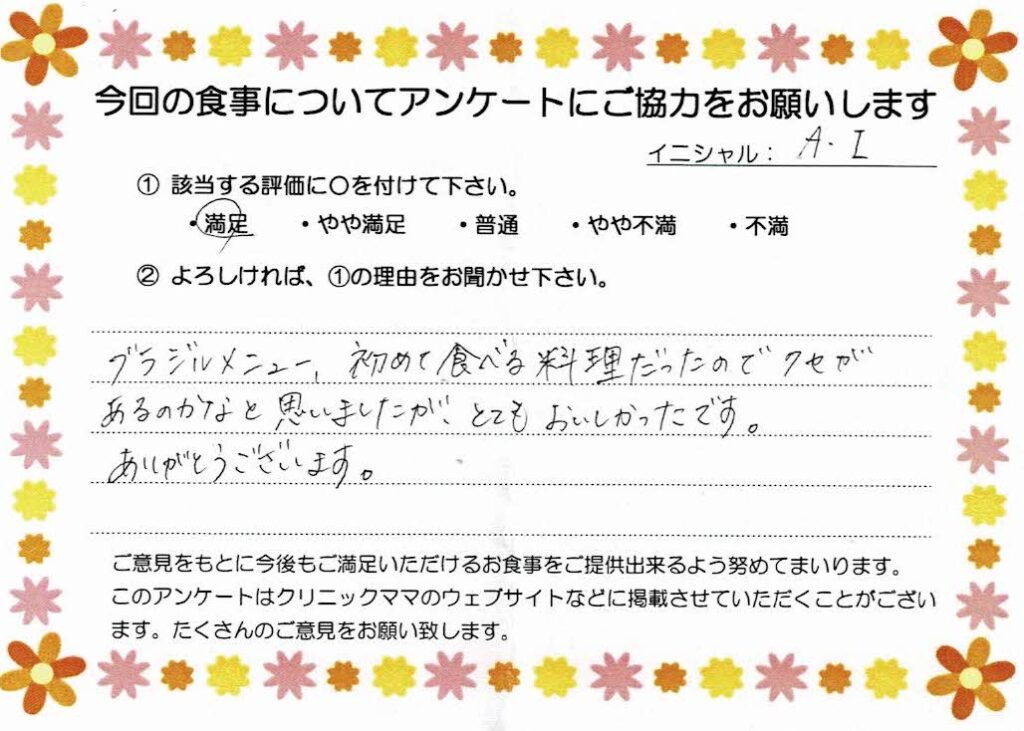 今回の食事についてアンケートにご協力をお願いします
イニシャル： A.I
① 該当する評価に〇を付けて下さい。
・満足 ・やや満足 ・普通 ・やや不満 ・不満
② よろしければ、①の理由をお聞かせ下さい。
ブラジルメニュー、初めて食べる料理だったのでクセが
あるのかなと思いましたが、とてもおいしかったです。
ありがとうございます。
ご意見をもとに今後もご満足いただけるお食事をご提供出来るよう努めてまいります。
このアンケートはクリニックママのウェブサイトなどに掲載させていただくことがござい
ます。たくさんのご意見をお願い致します。